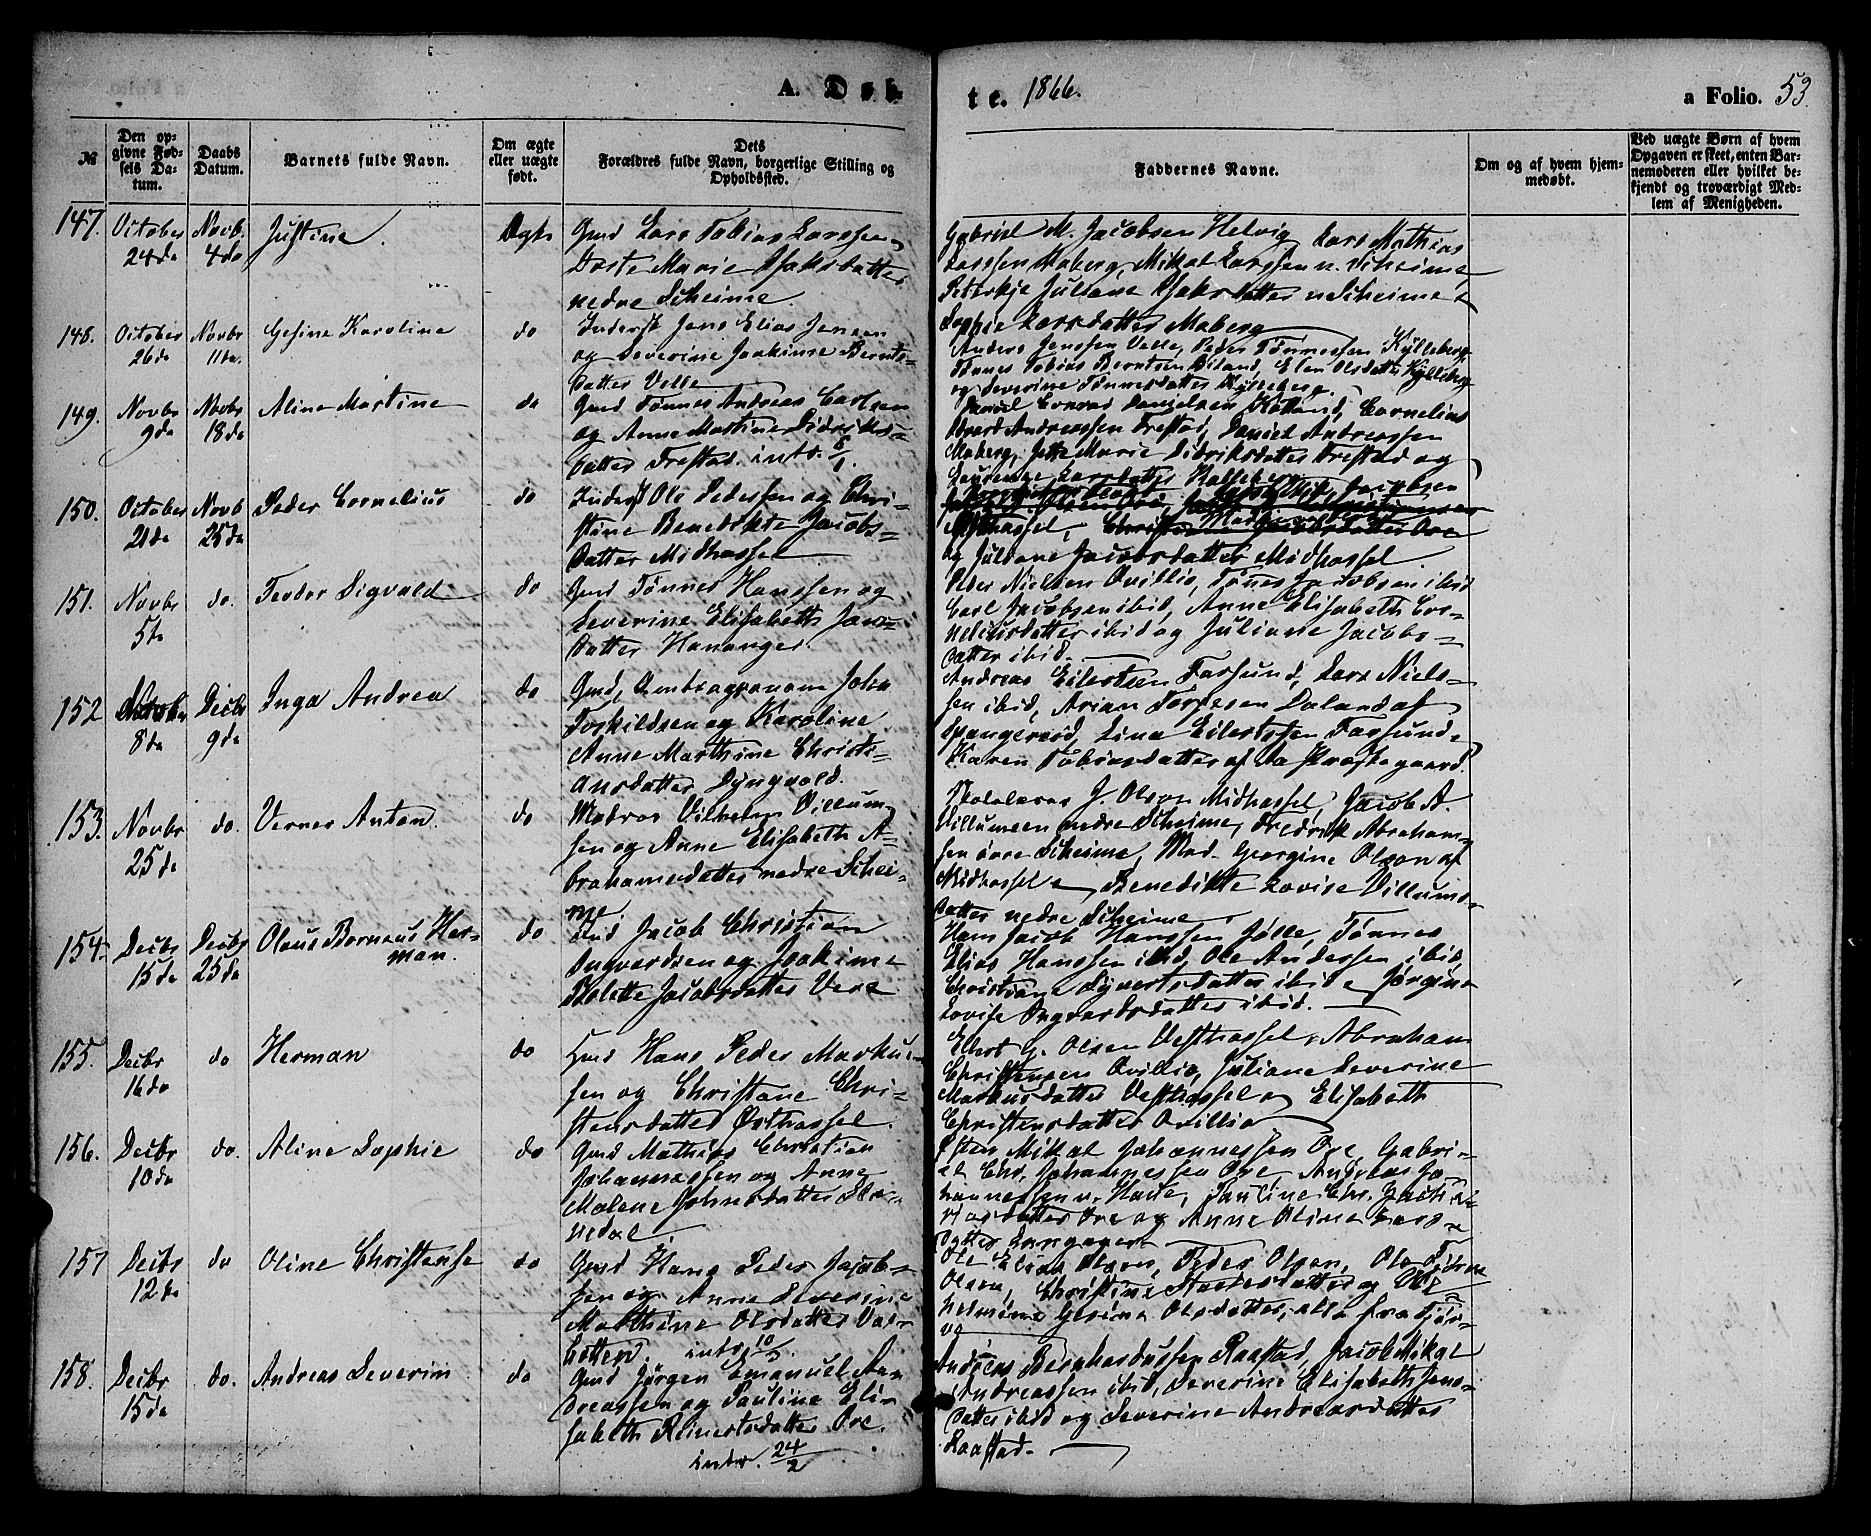 A. Døb-
te. 1866.
a Folio. 53.
№
Den op-
givne Fød-
sels Da-
tum.
Daabs
Datum.
Barnets fulde Navn.
Om ægte
eller uægte
født.
Dets
Forældres fulde Navn, borgerlige Stilling og
Opholdssted.
Faddernes Navne.
Om og af hvem hjem-
medøbt.
Ved uægte Børn af hvem
Opgaven er skeet, enten Bar-
nemoderen eller hvilket be-
kjendt og troværdigt Med-
lem af Menigheden.
147. October Novb. Justine. Ægte Gmd Lars Tobias Larssen
24de 4de
Dorte Marie Isaksdatter
nedre Scheime
Gabriel M. Jacobsen Helvig, Lars Mathias
Larssen Maberg, Mikal Larssen n. Scheime,
Juliane Isaksdatter n Scheime
Sophie Larsdatter Maberg
148. October Novbr Gesine Karoline do Inderst Jens Elias Jensen
26de 11te.
og Severine Joakime Bernts-
datter Velle
Anders Jenssen Velle, Peder Tønnessen Kjølleberg
Tønnes Tobias Berntsen Biland, Elen Olsdatter Kjølleberg
og Severine Tønnesdatter Kjølleberg.
149. Novbr Novbr Aline Martine do Gmd Tønnes Andreas Carlsen
9de 18de
og Anne Martine Didriks-
datter Frestad. intr. 6/1.
Daniel Conrad Danielsen Kotland, Cornelius
Edvard Andreassen Frestad, Daniel Andreassen
Maberg, Jette Marie Didriksdatter Frestad og
Larsdatter
150. October Novb Peder Cornelius do Inderst Ole Pedersen og Chri-
21de 25de
stine Benedikte Jacobs-
datter Midhassel
Midhassel,
og Juliane Jacobsdatter Midhassel
151. Novbr do. Teodor Sigvald do Gmd Tønnes Hanssen og
5te
Severine Elisabeth Jans-
datter Hananger.
Peder Nielsen Ovillio, Tønes Jacobsen ibid
Carl Jacobsen ibid, Anne Elisabeth Cor-
neliusdatter ibid og Juliane Jacobs-
datter ibid.
152 Decbr Inga Andrea do Gmd, John
8de 9de
Torkildsen og Karoline
Anne Marthine Christi-
ansdatter Dyngvold.
Andreas Eilertsen Farsund, Lars Niels-
sen ibid, Arian Torgesen Daland af
Spangereid, Lina Eilertssen Farsund
Karen Tobiasdatter af
153. Novbr do. Verner Anton. do Matros Vilhelm Villum-
25de
sen og Anne Elisabeth A-
brahamsdatter nedre Schei-
me.
J. Olsen Midhassel, Jacob A.
Villumsen nedre Scheime, Fredrik Abraham-
sen øvre Scheime, Mad. Georgine Olsen af
Midhassel og Benedikte Lovise Villums-
datter nedre Scheime.
154. Decbr Decbr Olaus Berneus Her- do Gmd Jacob Christian
15de 25de man.
Ingvardsen og Joakime
Tolette Jacobsdatter Vere
Hans Jacob Hanssen Jølle, Tønnes
Elias Hanssen ibid, Ole Andersen ibid,
Christiane Syvertsdatter ibid & Jørgine
Lovise Ingvardsdatter ibid.
155. Decbr do Herman do Gmd Hans Peder Marku-
16de
sen og Christiane Chri-
stensdatter Østhassel.
Eilert G. Olsen Vesthassel, Abraham
Christensen Ovillio, Juliane Severine
Markusdatter Vesthassel og Elisabeth
Christensdatter Ovillio
156. Decbr do. Aline Sophie do Gmd Mathias Christian
10de
Johannessen og Anne
Malene Johnsdatter Sla-
nedal.
Østen Mikal Johannessen Ore, Gabri-
el Chr. Johannessen Ore, Andreas Jo-
hannessen n. Haue, Pauline Chr. Zachar-
iasdatter Ore og Anne Oline Lars-
datter Langager
157 Decbr do Oline Christense do Gmd Hans Peder Jacob-
12te
sen og Anne Severine
Mathine Olsdatter Vat-
intr. 10
Ole Elias Olsen, Peder Olsen, Ole Tobias
Olsen, Christine og Vil-
helmine Gesine Olsdatter, alle fra Kjør-
158. Decbr do. Andreas Severin do Gmd Jørgen Emanuel An-
15de
dreassen og Pauline Eli-
sabeth Reinertsdatter Ore.
intr. 24/2
Andreas Bernhardussen Raastad, Jacob Mikal
Andreassen ibid, Severine Elisabeth Jens-
datter ibid og Severine Andreasdatter
Raastad.